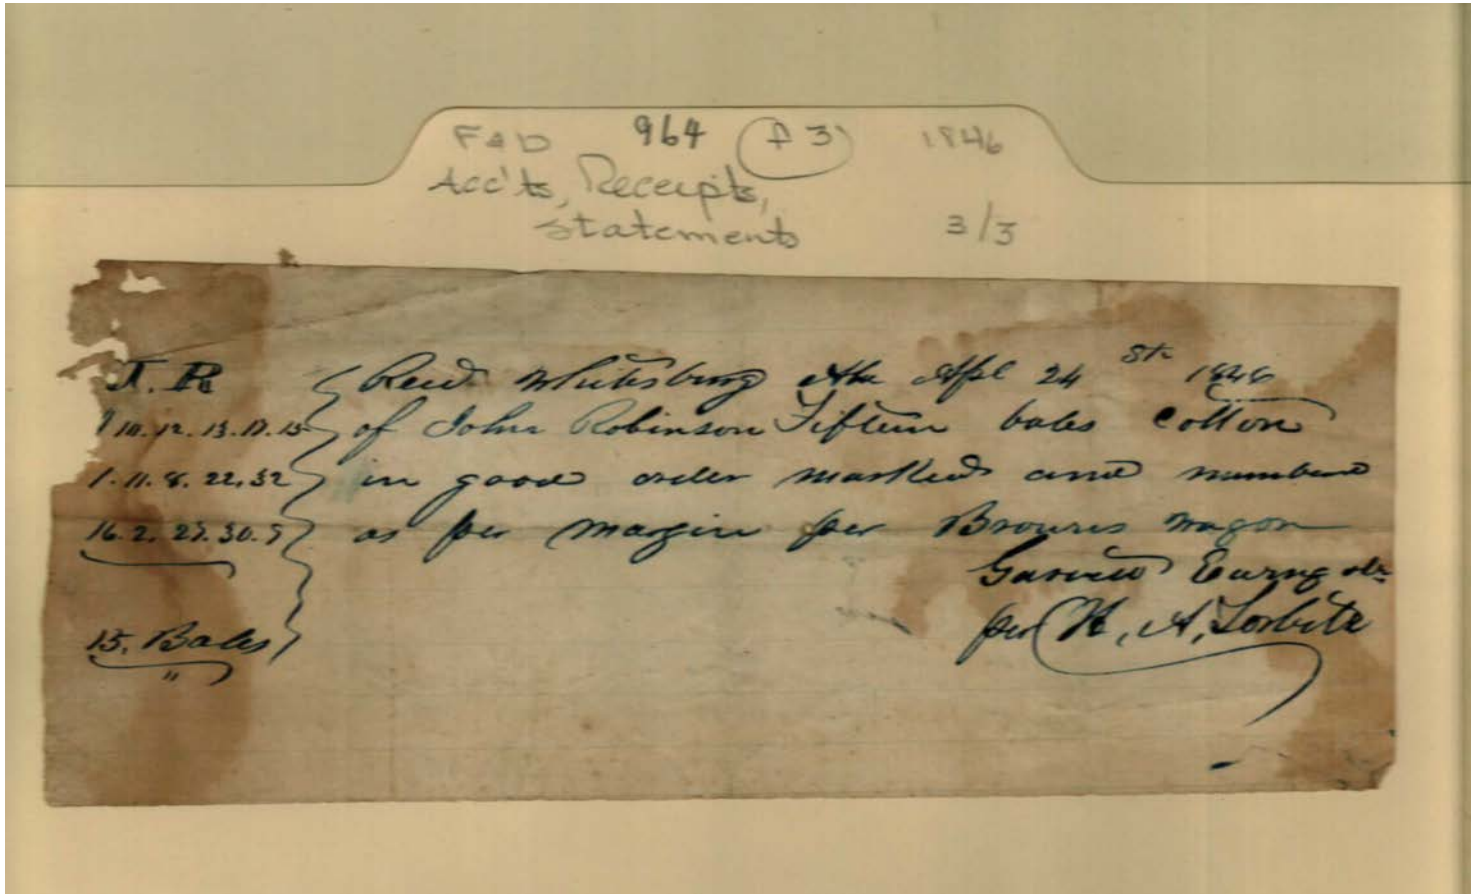 F&D 964 f 3 1846
Acc'ts, Receipts,
Statements 3/3
J. R
10. 12. 13. 17. 15
1. 11. 8. 22. 32
16. 2. 27. 30. 5
15. Bales
Recd Whitesburg Ala Apl 24 1846
of John Robinson Fifteen bales Cotton
in good order marked and numbered
as per margin per Browns wagon
per